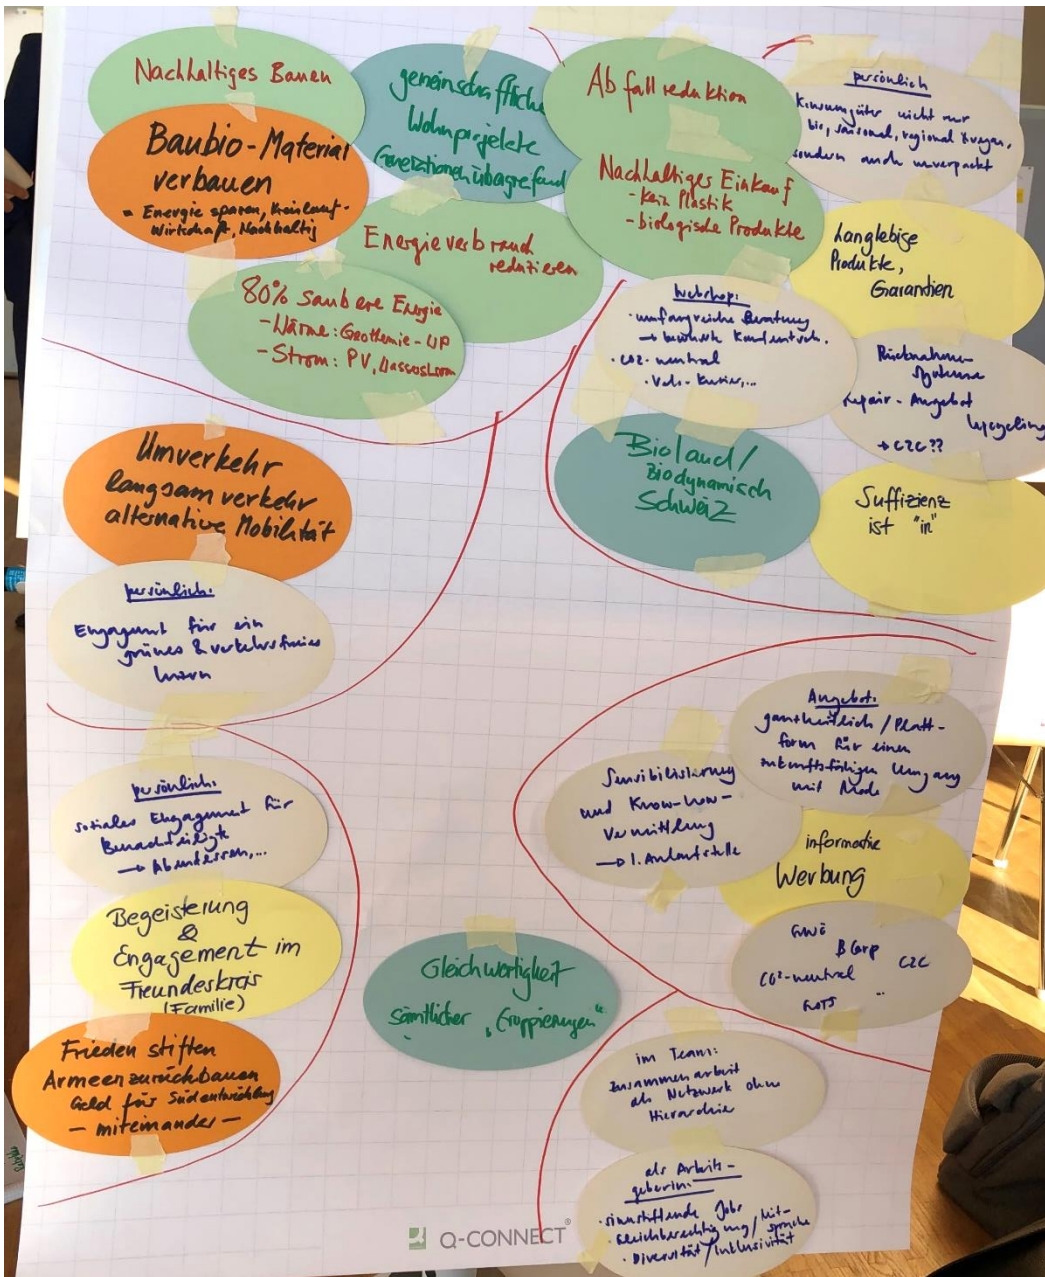 Nachhaltiges Bauen
Baubio-Material
verbauen
= Energie sparen, Kreislauf-
Wirtschaft, Nachhaltig
gemeinschaftliche
Wohnprojekte
Generationenübergreifend
Energieverbrauch
reduzieren
80% saubere Energie
- Wärme: Geothermie-WP
- Strom: PV, Wasserstrom
Abfallreduktion
Nachhaltiges Einkauf
- kein Plastik
- biologische Produkte
persönlich
Konsumgüter nicht nur
bio, saisonal, regional &
sondern auch unverpackt
Langlebige
Produkte,
Garantien
Webshop:
· umfangreiche Beratung
→ bewusste Kaufentsch.
· CO2-neutral
· Velo-Kurier,...
Rücknahme-
Systeme
Repair-Angebot
Upcycling
→ C2C??
Bioland/
Biodynamisch
Schweiz
Suffizienz
ist "in"
Umverkehr
langsamverkehr
alternative Mobilität
persönlich:
Engagement für ein
grünes & verkehrsfreies
Luzern
persönlich:
soziales Engagement für
Benachteiligte
→ Abendessen,...
Begeisterung
&
Engagement im
Freundeskreis
(Familie)
Frieden stiften
Armeen zurückbauen
Geld für Südentwicklung
- miteinander -
Gleichwertigkeit
sämtlicher „Gruppierungen"
Angebot:
ganzheitlich / Platt-
form für einen
zukunftsfähigen Umgang
mit Mode
Sensibilisierung
und Know-how-
Vermittlung
→ 1. Anlaufstelle
informative
Werbung
GWÖ
B Corp
C2C
CO²-neutral
GOTS ...
im Team:
Zusammenarbeit
als Netzwerk ohne
Hierarchie
als Arbeit-
geberin:
· sinnstiftende Jobs
· Gleichberechtigung / Mit-
sprache
· Diversität / Inklusivität
Q-CONNECT®